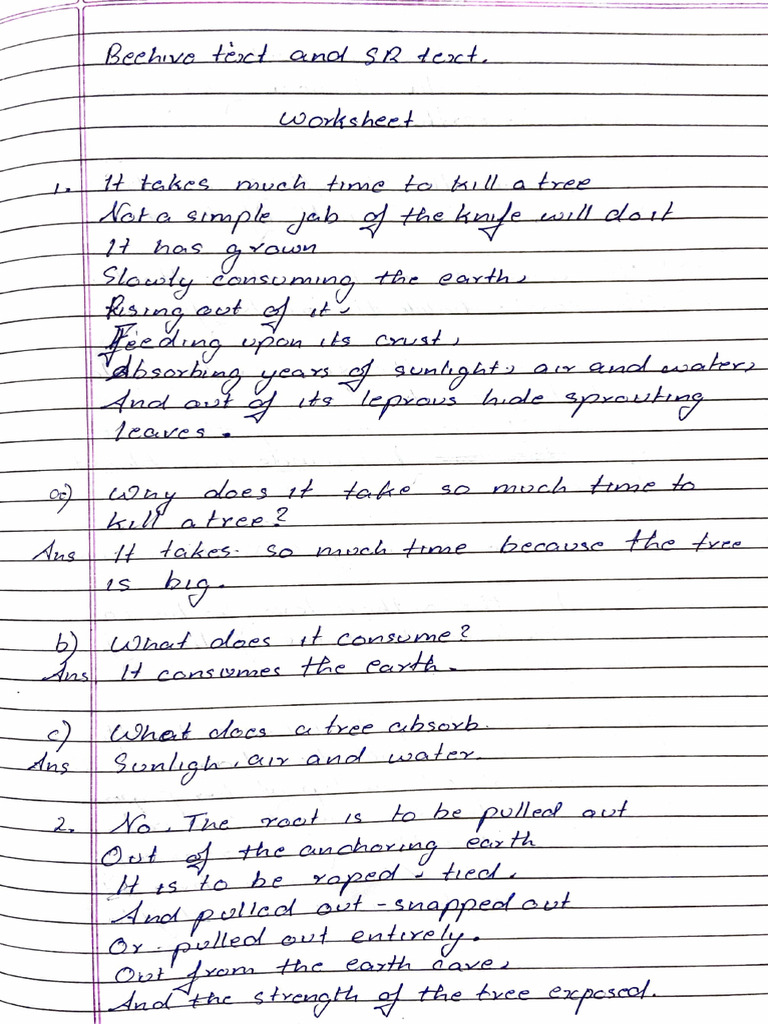 Beehive text and SR text.
Worksheet
1. It takes much time to kill a tree
Not a simple jab of the knife will do it
It has grown
Slowly consuming the earth,
Rising out of it,
Feeding upon its crust,
Absorbing years of sunlight, air and water,
And out of its leprous hide sprouting
leaves.
a) Why does it take so much time to
kill a tree?
Ans It takes so much time because the tree
is big.
b) What does it consume?
Ans It consumes the earth.
c) What does a tree absorb.
Ans Sunligh, air and water.
2. No, The root is to be pulled out
Out of the anchoring earth
It is to be roped - tied.
And pulled out - snapped out
Or pulled out entirely.
Out from the earth cave,
And the strength of the tree exposed.